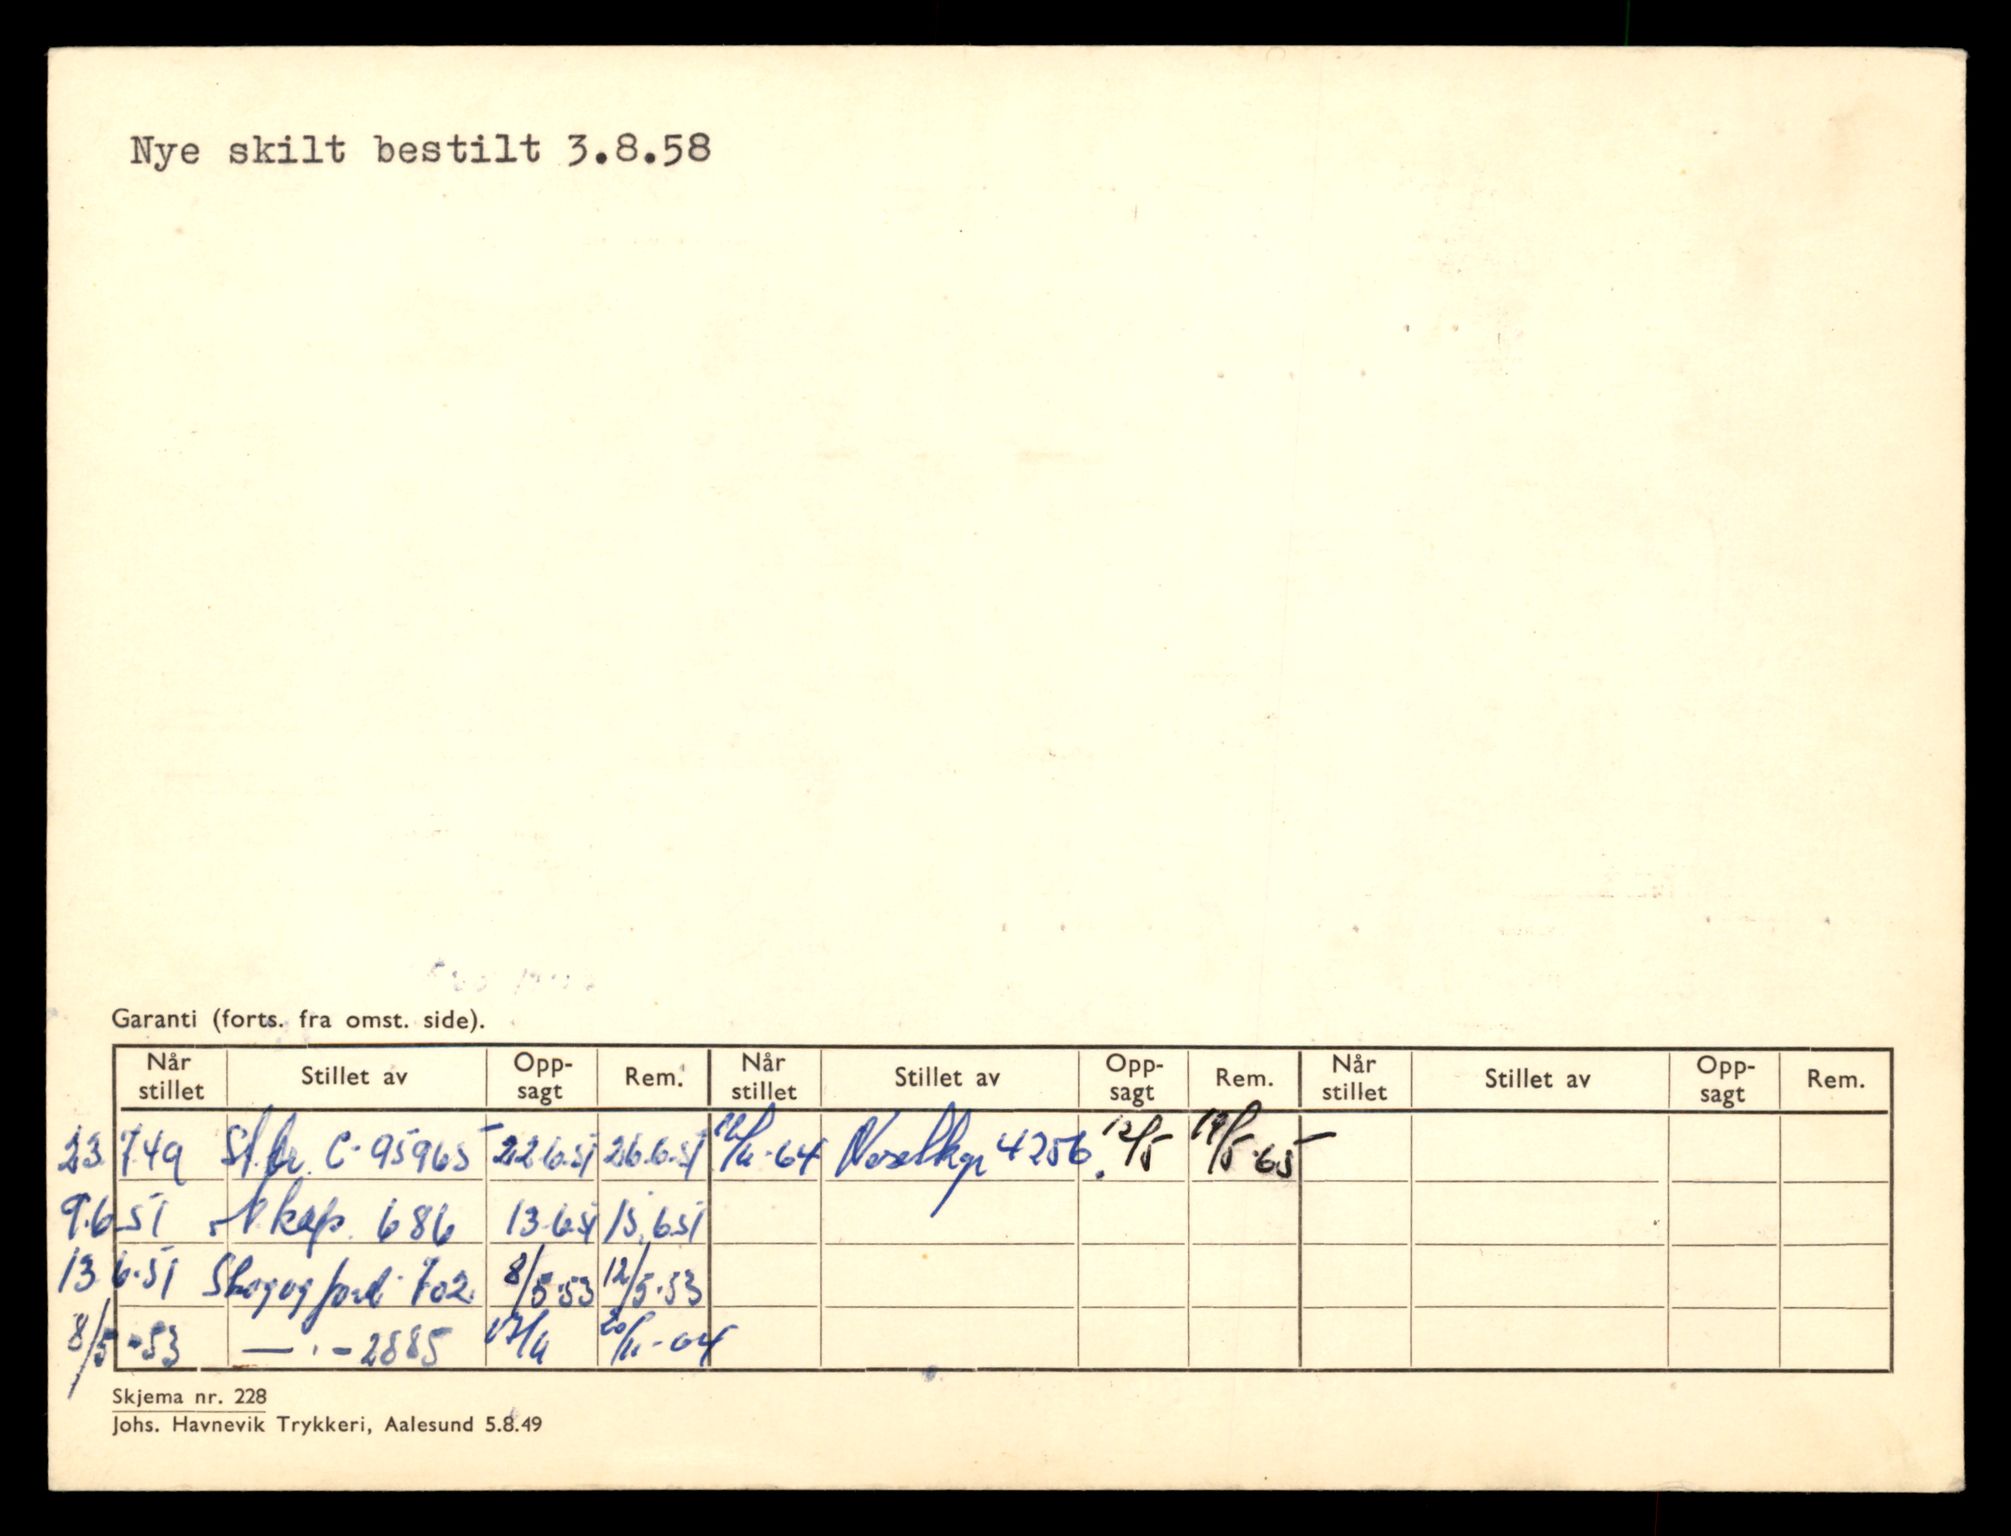 Nye skilt bestilt 3.8.58
Garanti (forts. fra omst. side).
Når stillet Stillet av Opp-sagt Rem. Når stillet Stillet av Opp-sagt Rem. Når stillet Stillet av Opp-sagt Rem.
23.7.49 St.br. C. 95965 22.6.51 26.6.51 64 4256 12/5 19/5.65
9.6.51 N. kap. 686 13.6.51 15.6.51
13.6.51 Skogogjord. 702 8/5.53 12/5.53
8/5-53 — . — 2885 20/11-64
Skjema nr. 228
Johs. Havnevik Trykkeri, Aalesund 5.8.49